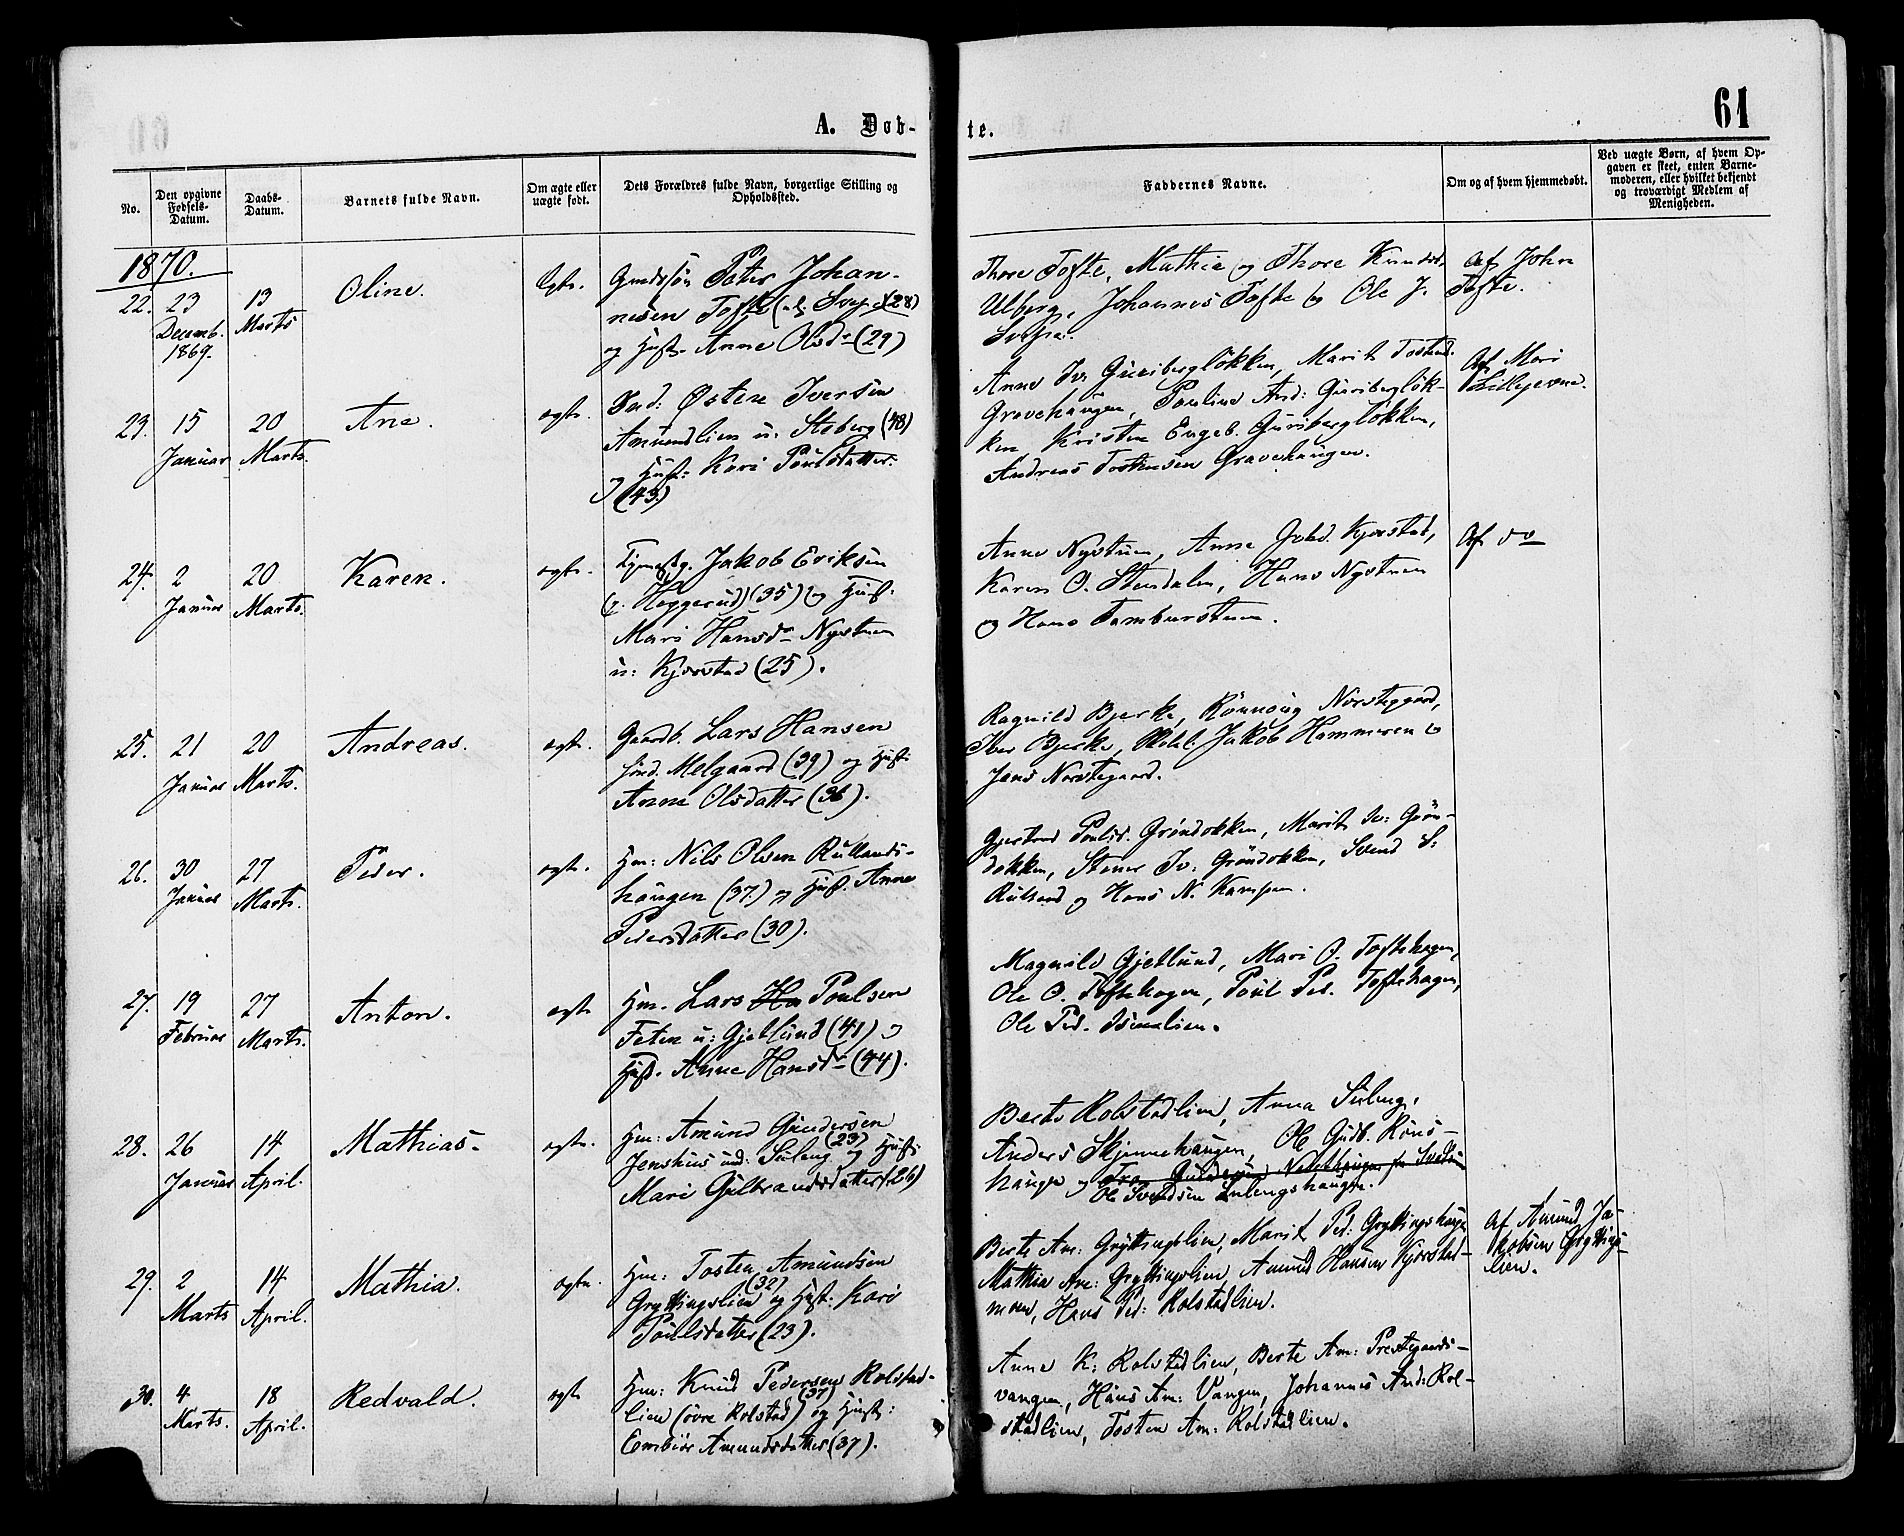 61
A. Døb-
te.
No.
Den opgivne Fødsels-Datum.
Daabs-Datum.
Barnets fulde Navn.
Om ægte eller uægte født.
Dets Forældres fulde Navn, borgerlige Stilling og Opholdssted.
Faddernes Navne.
Om og af hvem hjemmedøbt.
Ved uægte Børn, af hvem Opgaven er skeet, enten Barnemoderen, eller hvilket bekjendt og troværdigt Medlem af Menigheden.
1870.
22. 23 Decemb. 1869. 13 Marts
Oline.
Peter Johan-
nesen Tofte (28)
og Hust. Anne Olsdr (29)
Thore Tofte, Mathia og Thore Knuds.
Ulberg, Johannes Tofte og Ole J.
Af John
Tofte.
23. 15 Januar 20 Marts.
Ane.
ægte.
Ind: Østen Iversen
Amundlien u: Stoberg (48)
og Hust: Kari Poulsdatter
(43)
Anne Iv. Guribergløkken, Marit Tostens.
Gravehaugen, Pauline And: Guribergløk-
ken Kristen Engeb. Guribergløkken,
Andreas Tostensen Gravehaugen.
Af Mari
24. 2 Januar 20 Marts.
Karen.
ægte.
Jakob Eriksen
Heggerud) (35) og Hust:
Mari Hansdr Nystuen
u: Kjorstad (25).
Anne Nystuen, Anne Kjorstad,
Karen O. Stendalen, Hans Nystuen
og Hans Tamburstuen.
Af do
25. 21 Januar 20 Marts.
Andreas.
ægte.
Gaardb. Lars Hansen
Melgaard (39) og Hust:
Anne Olsdatter (36).
Ragnild Bjerke, Rönnoug Norstegaard,
Iver Bjerke, Jakob Hammeren og
Jens Norstegaard.
26. 30 Januar 27 Marts.
Peder.
ægte.
Hm: Nils Olsen Rullands-
haugen (37) og Hust. Anne
Pedersdatter (30).
Gjertrud Poulsd. Gröndokken, Marit Iv: Grön-
dokken, Stener Iv: Gröndokken, Svend S:
Ruland og Hans N. Kampen.
27. 19 Februar 27 Marts.
Anton.
ægte
Hm. Lars Ha Poulsen
Feten u: Gjetlund (41) og
Hust. Anne Hansdr (44).
Magnild Gjetlund, Mari O. Toftehagen,
Ole O. Toftehagen, Poul Ped. Toftehagen,
Ole Ped.
28. 26 Januar 14 April.
Mathias.
ægte.
Hm: Amund Gundersen
Jenshus und: Suleng (23) og Hust:
Mari Gulbrandsdatter (26)
Berte Rolstadlien, Anna Suleng,
Anders Skjennehaugen, Ole Gudb. Röns-
haugen og
Ole Svendsen Sulengshaugen.
29. 2 Marts 14 April.
Mathia.
ægte.
Hm: Tosten Amundsen
Gryttingslien (32) og Hust. Kari
Poulsdatter (23).
Berte Am: Gryttingslien, Marit Ped: Gryttingshaugen
Mathia Am: Gryttingslien, Amund Hansen Kjorstad-
moen, Hans Ped: Rolstadlien.
Af Amund Ja-
kobsen Gryttings-
lien.
30. 4 Marts. 18 April.
Redvald.
ægte
Hm: Knud Pedersen Rolstad-
lien (övre Rolstad) (37) og Hust:
Embiör Amundsdatter (37).
Anne K: Rolstadlien, Berte Am: Prestegaards-
vangen, Hans Am: Vangen, Johannes And: Rol-
stadlien, Tosten Am: Rolstadlien.